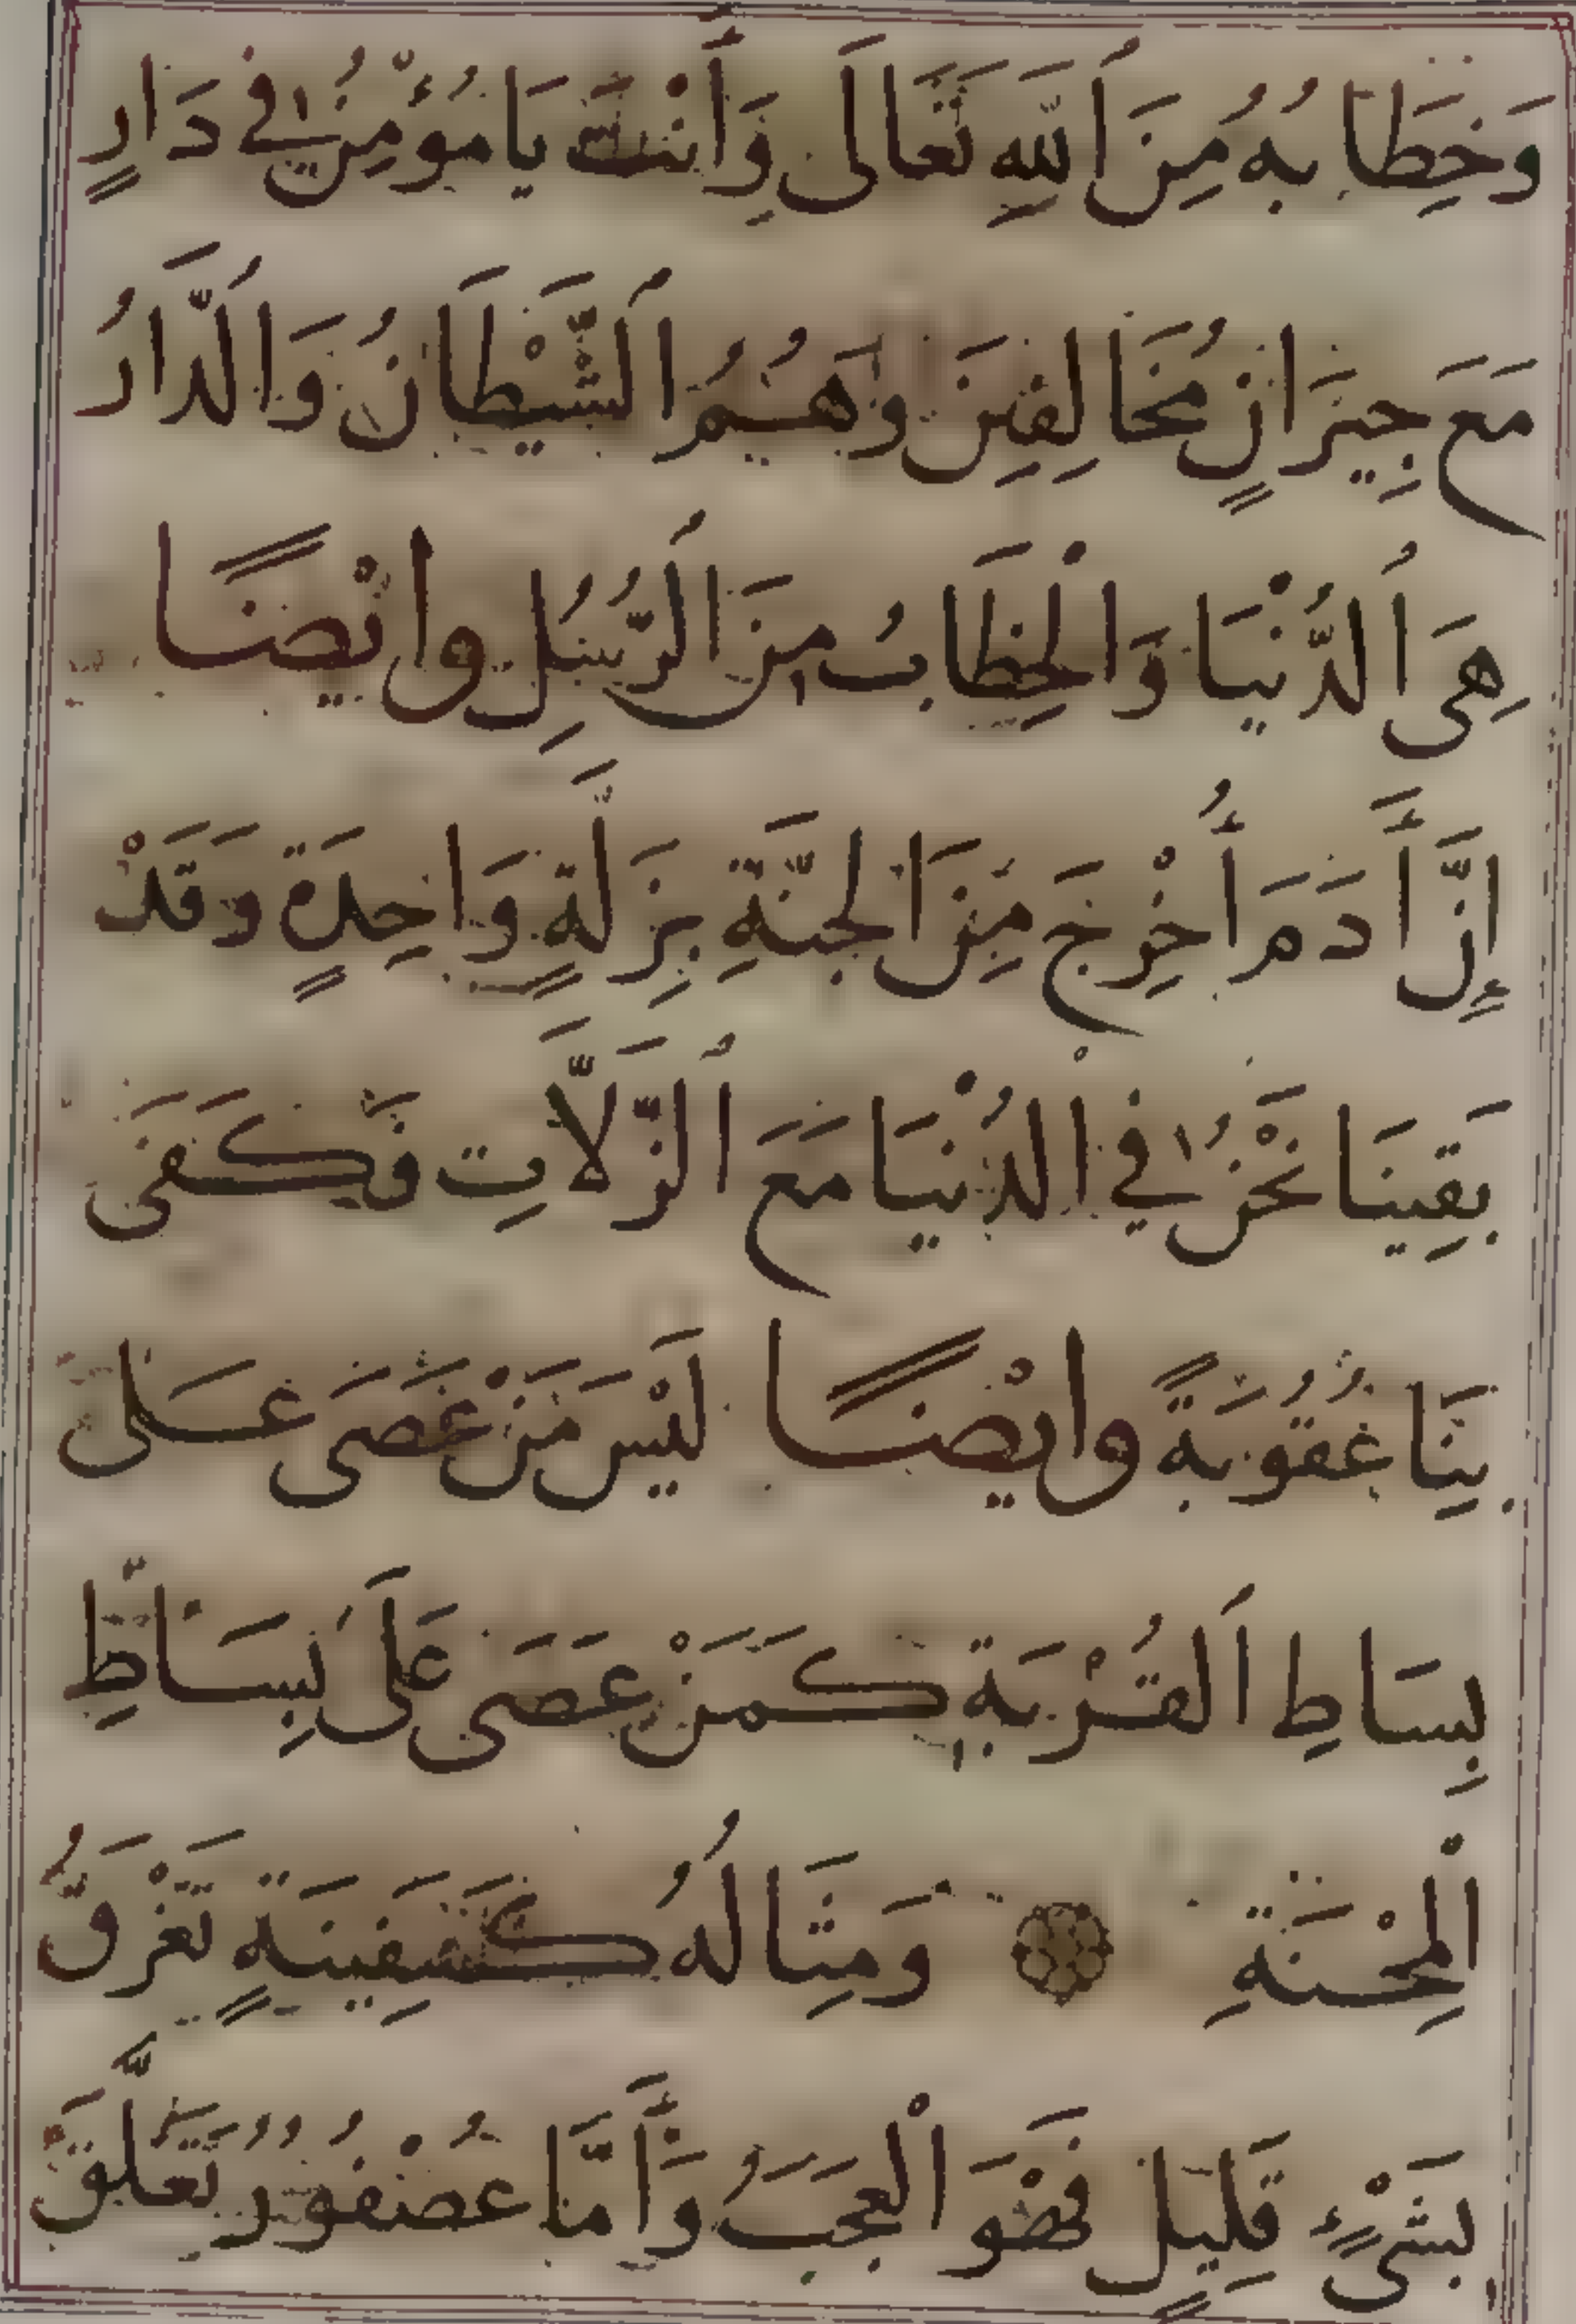 وَخِطَابُهُ مِنَ اَللهِ تَعَالَى وَأَنْتَ يَا مُؤْمِنُ فِي دَارٍ
مَعَ جِيرَانٍ مُخَالِفِينَ وَهُمُ اَلشَّيْطَانُ وَالدَّارُ
هِيَ اُلدُّنْيَا وَالْخِطَابُ مِنَ اَلرُّسُلِ وايْضًا
إِنَّ أَدَمَ أُخْرِجَ مِنَ الجَنَّةِ بِزَلَّةٍ وَاحِدَةٍ وَقَدْ
بَقِينَا نَحْنُ فِي اْلدُنْيَا مَعَ اَلزَّلَّاتِ فَكَفَى
بِنَا عُقُوبَةً وايْضًا لَيْسَ مَنْ عَصَى عَلَى
بِسَاطِ اَلقُرْبَةِ كَمَنْ عَصَى عَلَى بِسَاطِ
اْلمِحْنَةِ وَمِثَالُهُ كَسَفِينَةٍ تَغْرَقُ
بِشَيْءٍ قَلِيلٍ فَهْوَ اْلعَجَبُ وَأَمَّا عُصْفُورٌ تَعَلَّقَ